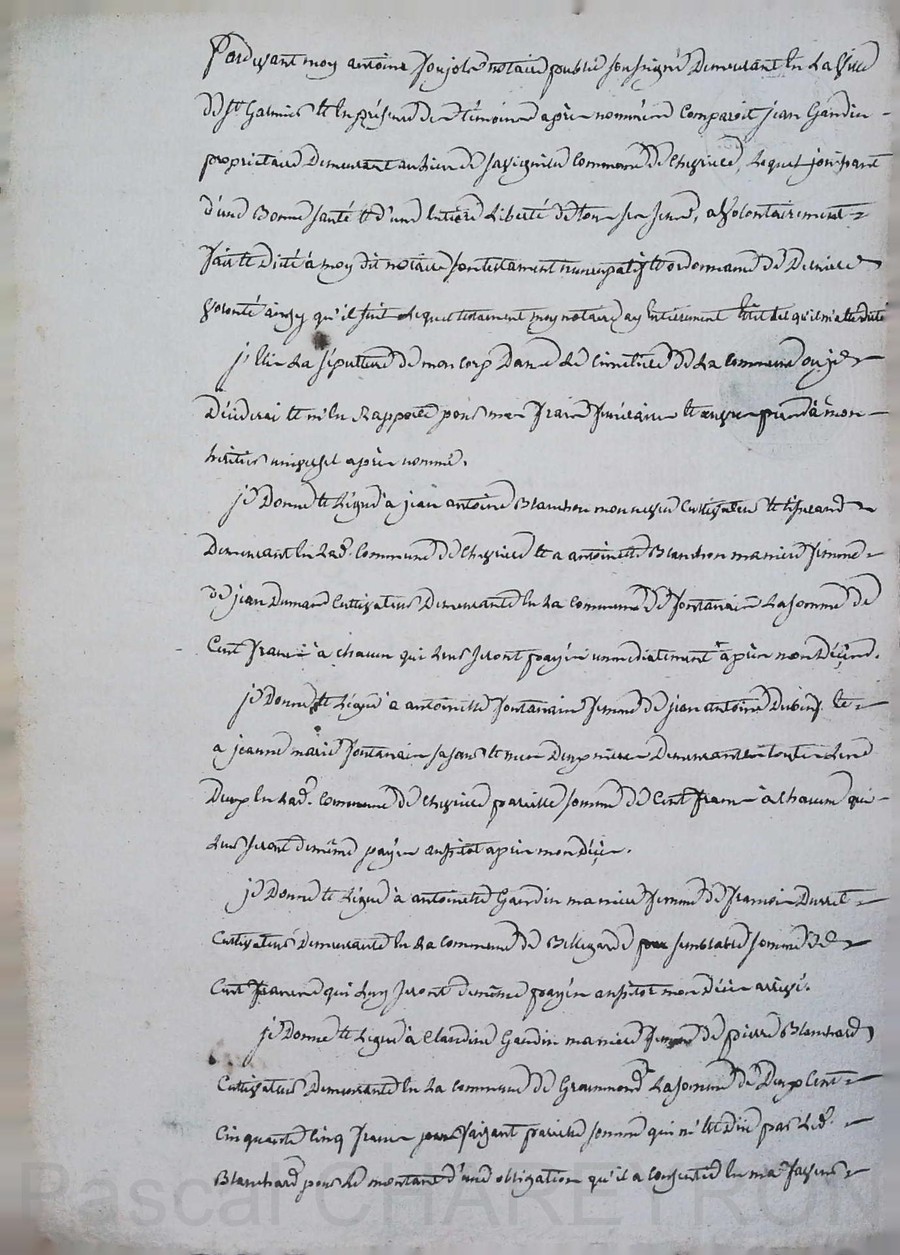 Pardevant moy antoine Soujols notaire public soussigné Demeurant En La Ville
De St Galmier Et En présence des témoins après nommés Comparoit jean Gaudin
propriétaire Demeurant au lieu de Savignieu Commune De Chevrieres, Lequel jouissant
d'une Bonne santé Et d'une Entiere Liberté de tous ses sens, a volontairement
fait Et Dicté a moy dit notaire son testament nuncupatif Et ordonnance de Derniere
Volonté ainsy qu'il suit Lequel testament moy notaire ay Entierement Ecrit tel qu'il m'a Eté dicté
j'Elis La sépulture De mon Corp Dans Le Cimetiere De La Commune ou je
Déciderai Et m'En Rapporte pour mes frais funéraires Et a mon
héritier universel après nommé.
je Donne Et Légue a jean antoine Blanchon mon neveu Cultivateur Et tisserand
Demeurant En Lad. Commune De Chevrieres Et a antoinette Blanchon ma niece femme
de jean Dumas Cultivateur Demeurante En La Commune De fontanais La somme De
Cent francs a chacun qui Leur seront payés immediatement après mon Décès.
je Donne Et Légue a antoinette fontanais femme De jean antoine Et
a jeanne marie fontanais sa sœur Et mes Deux nieces Demeurantes toutes Les
Deux En Lad. Commune De Chevrieres pareille somme De Cent francs a chacune qui
Leur seront demême payés aussitot après mon Décès.
je Donne Et Légue a antoinette Gaudin ma niece femme De françois
Cultivateur Demeurante En La Commune De Bellegarde semblable somme De
Cent francs qui Luy seront demême payés aussitot mon Décès arrivé.
je Donne Et Légue a Claudine Gaudin ma niece femme De pierre Blanchard
Cultivateur Demeurante En La Commune De Grammond La somme De Deux Cent
Cinquante Cinq francs faisant pareille somme qui m'Est Due par Led.
Blanchard pour Le montant d'une obligation qu'il a consentie En ma faveur
Pascal CHARETRON